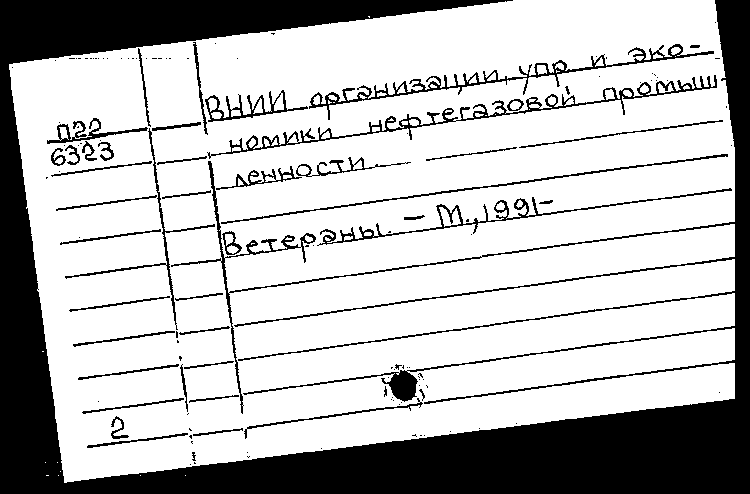 ВНИИ организации, упр и эко-
П22
номики нефтегазовой промыш-
6323
ленности.
Ветераны. - М., 1991-
2